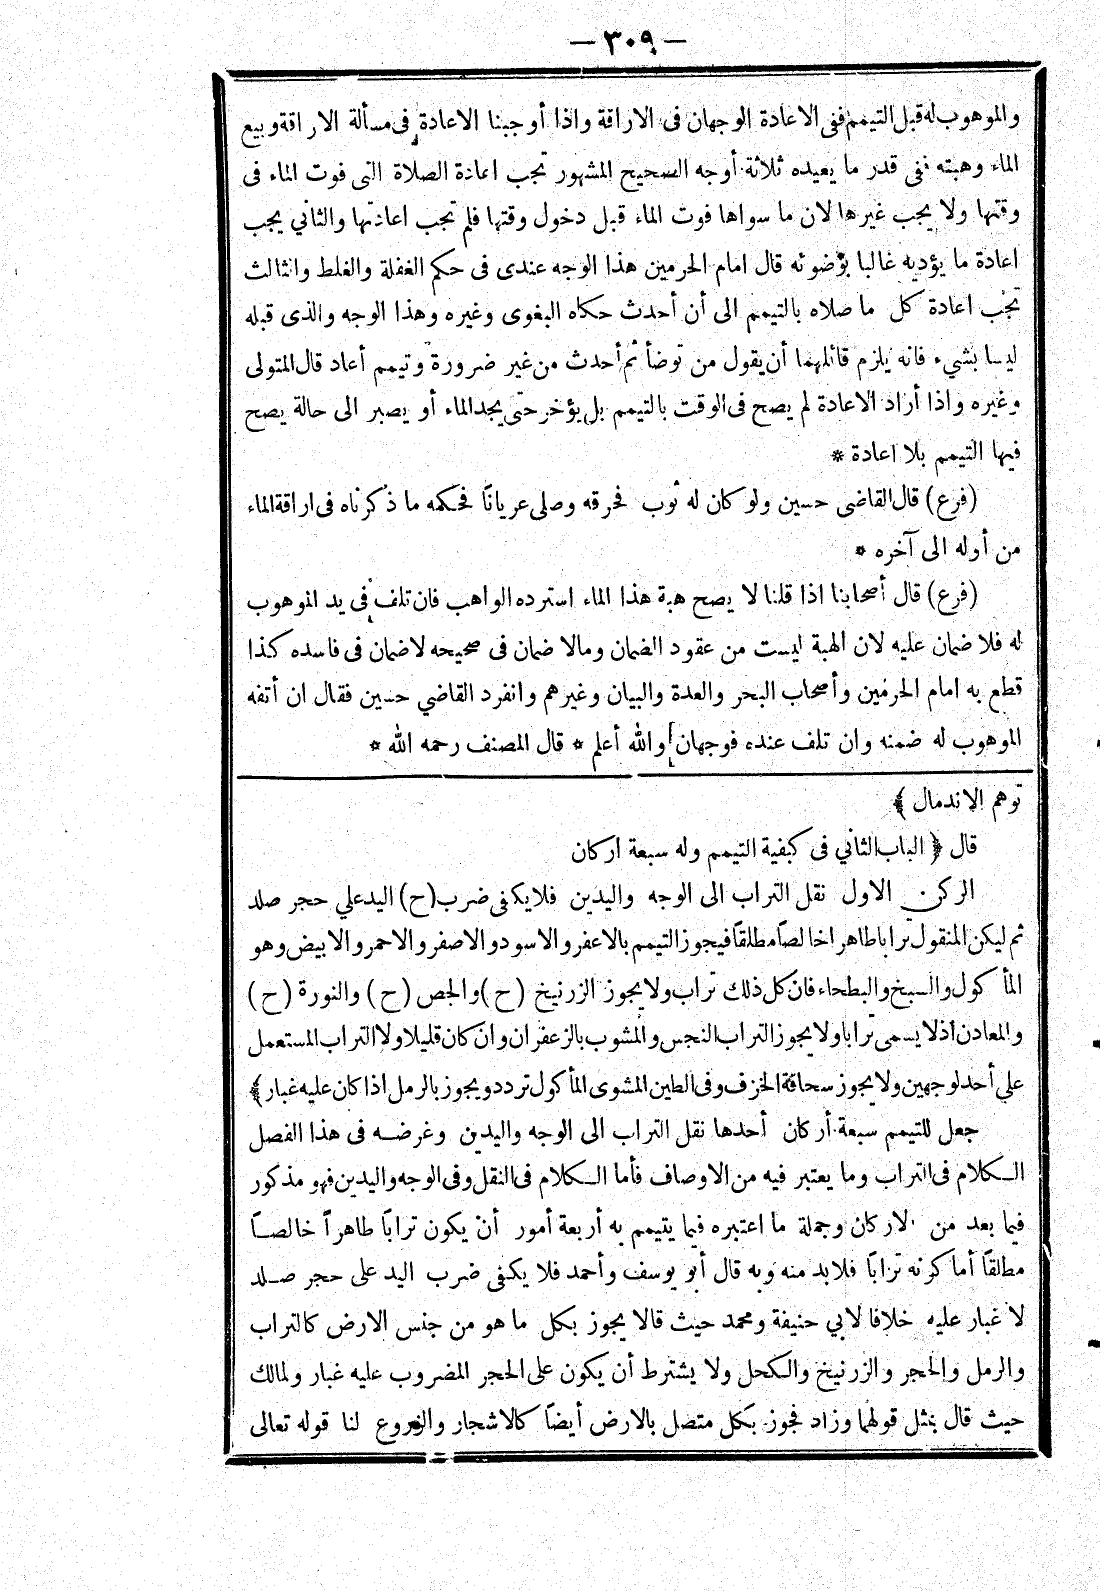 — ٣٠٩ —
والموهوب له قبل التيمم ففي الاعادة الوجهان فى الاراقة واذا أوجبنا الاعادة فى مسألة الاراقة وبيع
الماء وهبته ففى قدر ما يعيده ثلاثة أوجه الصحيح المشهور تجب اعادة الصلاة التى فوت الماء فى
وقتها ولا يجب غيرها لان ما سواها فوت الماء قبل دخول وقتها فلم تجب اعادتها والثاني يجب
اعادة ما يؤديه غالبا بوضوئه قال امام الحرمين هذا الوجه عندى فى حكم الغفلة والغلط والثالث
تجب اعادة كل ما صلاه بالتيمم الى أن أحدث حكاه البغوى وغيره وهذا الوجه والذى قبله
ليسا بشيء فانه يلزم قائلهما أن يقول من توضأ ثم أحدث من غير ضرورة وتيمم أعاد قال المتولى
وغيره واذا أراد الاعادة لم يصح فى الوقت بالتيمم بل يؤخر حتى يجد الماء أو يصير الى حالة يصح
فيها التيمم بلا اعادة *
(فرع) قال القاضى حسين ولو كان له ثوب فحرقه وصلى عريانًا فحكمه ما ذكرناه فى اراقة الماء
من أوله الى آخره *
(فرع) قال أصحابنا اذا قلنا لا يصح هبة هذا الماء استرده الواهب فان تلف فى يد الموهوب
له فلا ضمان عليه لان الهبة ليست من عقود الضمان ومالا ضمان فى صحيحه لا ضمان فى فاسده كذا
قطع به امام الحرمين وأصحاب البحر والعدة والبيان وغيرهم وانفرد القاضي حسين فقال ان أتفه
الموهوب له ضمنه وان تلف عنده فوجهان والله أعلم * قال المصنف رحمه الله *
توهم الاندمال ﴾
قال ﴿ الباب الثاني فى كيفية التيمم وله سبعة اركان
الركن الاول نقل التراب الى الوجه واليدين فلا يكفى ضرب (ح) اليد علي حجر صلد
ثم ليكن المنقول ترابا طاهرا خالصاً مطلقاً فيجوز التيمم بالاعفر والاسود والاصفر والاحمر والابيض وهو
المأكول والسبخ والبطحاء فان كل ذلك تراب ولا يجوز الزرنيخ (ح) والجص (ح) والنورة (ح)
والمعادن اذ لا يسمى ترابا ولا يجوز التراب النجس والمشوب بالزعفران وان كان قليلا ولا التراب المستعمل
علي أحد لوجهين ولا يجوز سحاقة الخزف وفى الطين المشوى المأكول تردد ويجوز بالرمل اذا كان عليه غبار ﴾
جعل للتيمم سبعة أركان أحدها نقل التراب الى الوجه واليدين وغرضه فى هذا الفصل
الكلام فى التراب وما يعتبر فيه من الاوصاف فأما الكلام فى النقل وفى الوجه واليدين فهو مذكور
فيما بعد من الاركان وجملة ما اعتبره فيما يتيمم به أربعة أمور أن يكون ترابًا طاهراً خالصاً
مطلقًا أما كونه ترابًا فلابد منه وبه قال أبو يوسف وأحمد فلا يكفى ضرب اليد على حجر صلد
لا غبار عليه خلافا لابي حنيفة ومحمد حيث قالا يجوز بكل ما هو من جنس الارض كالتراب
والرمل والحجر والزرنيخ والكحل ولا يشترط أن يكون على الحجر المضروب عليه غبار ولمالك
حيث قال بمثل قولهما وزاد فجوز بكل متصل بالارض أيضاً كالاشجار والزروع لنا قوله تعالى